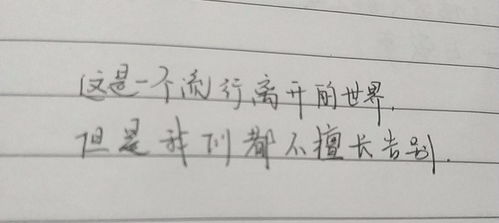 这是一个流行离开的世界.
但是我们都不擅长告别.